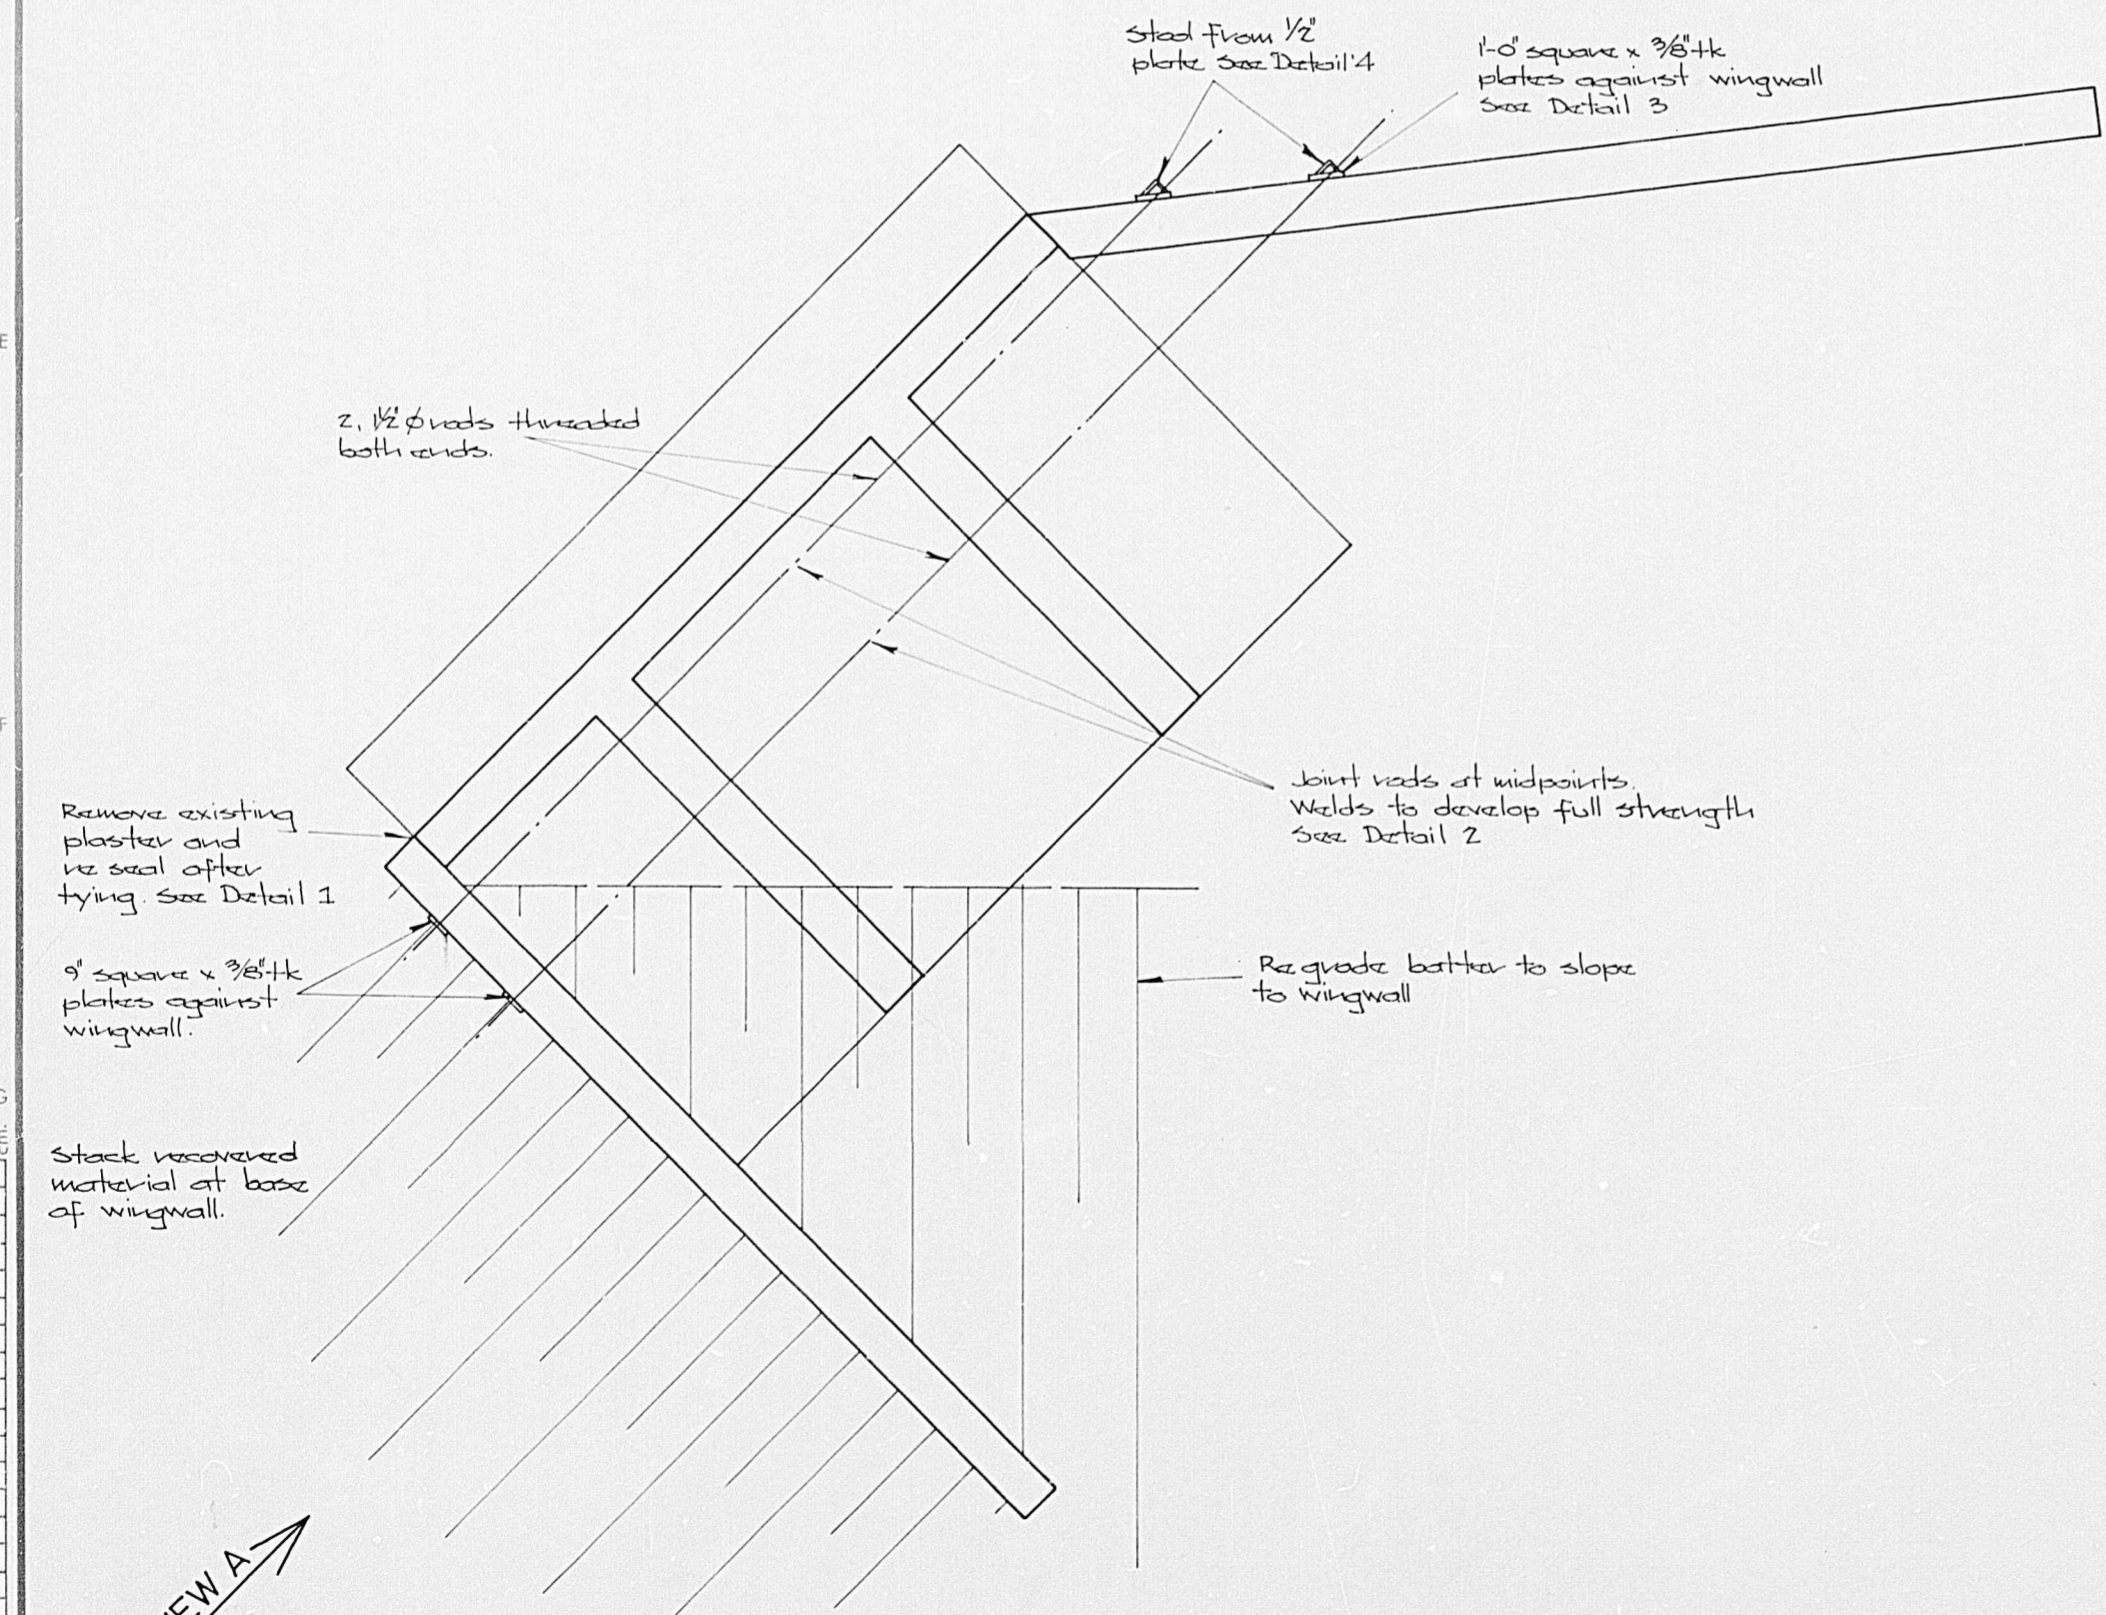 Stool from 1/2"
plate see Detail 4
1'-0" square x 3/8" tk
plates against wingwall
see Detail 3
2, 1½" ϕ rods threaded
both ends.
Joint rods at midpoints.
Welds to develop full strength
see Detail 2
Remove existing
plaster and
re seal after
tying. see Detail 1
9" square x 3/8" tk
plates against
wingwall.
Re grade batter to slope
to wingwall
Stack recovered
material at base
of wingwall.
EW A
E
F
G